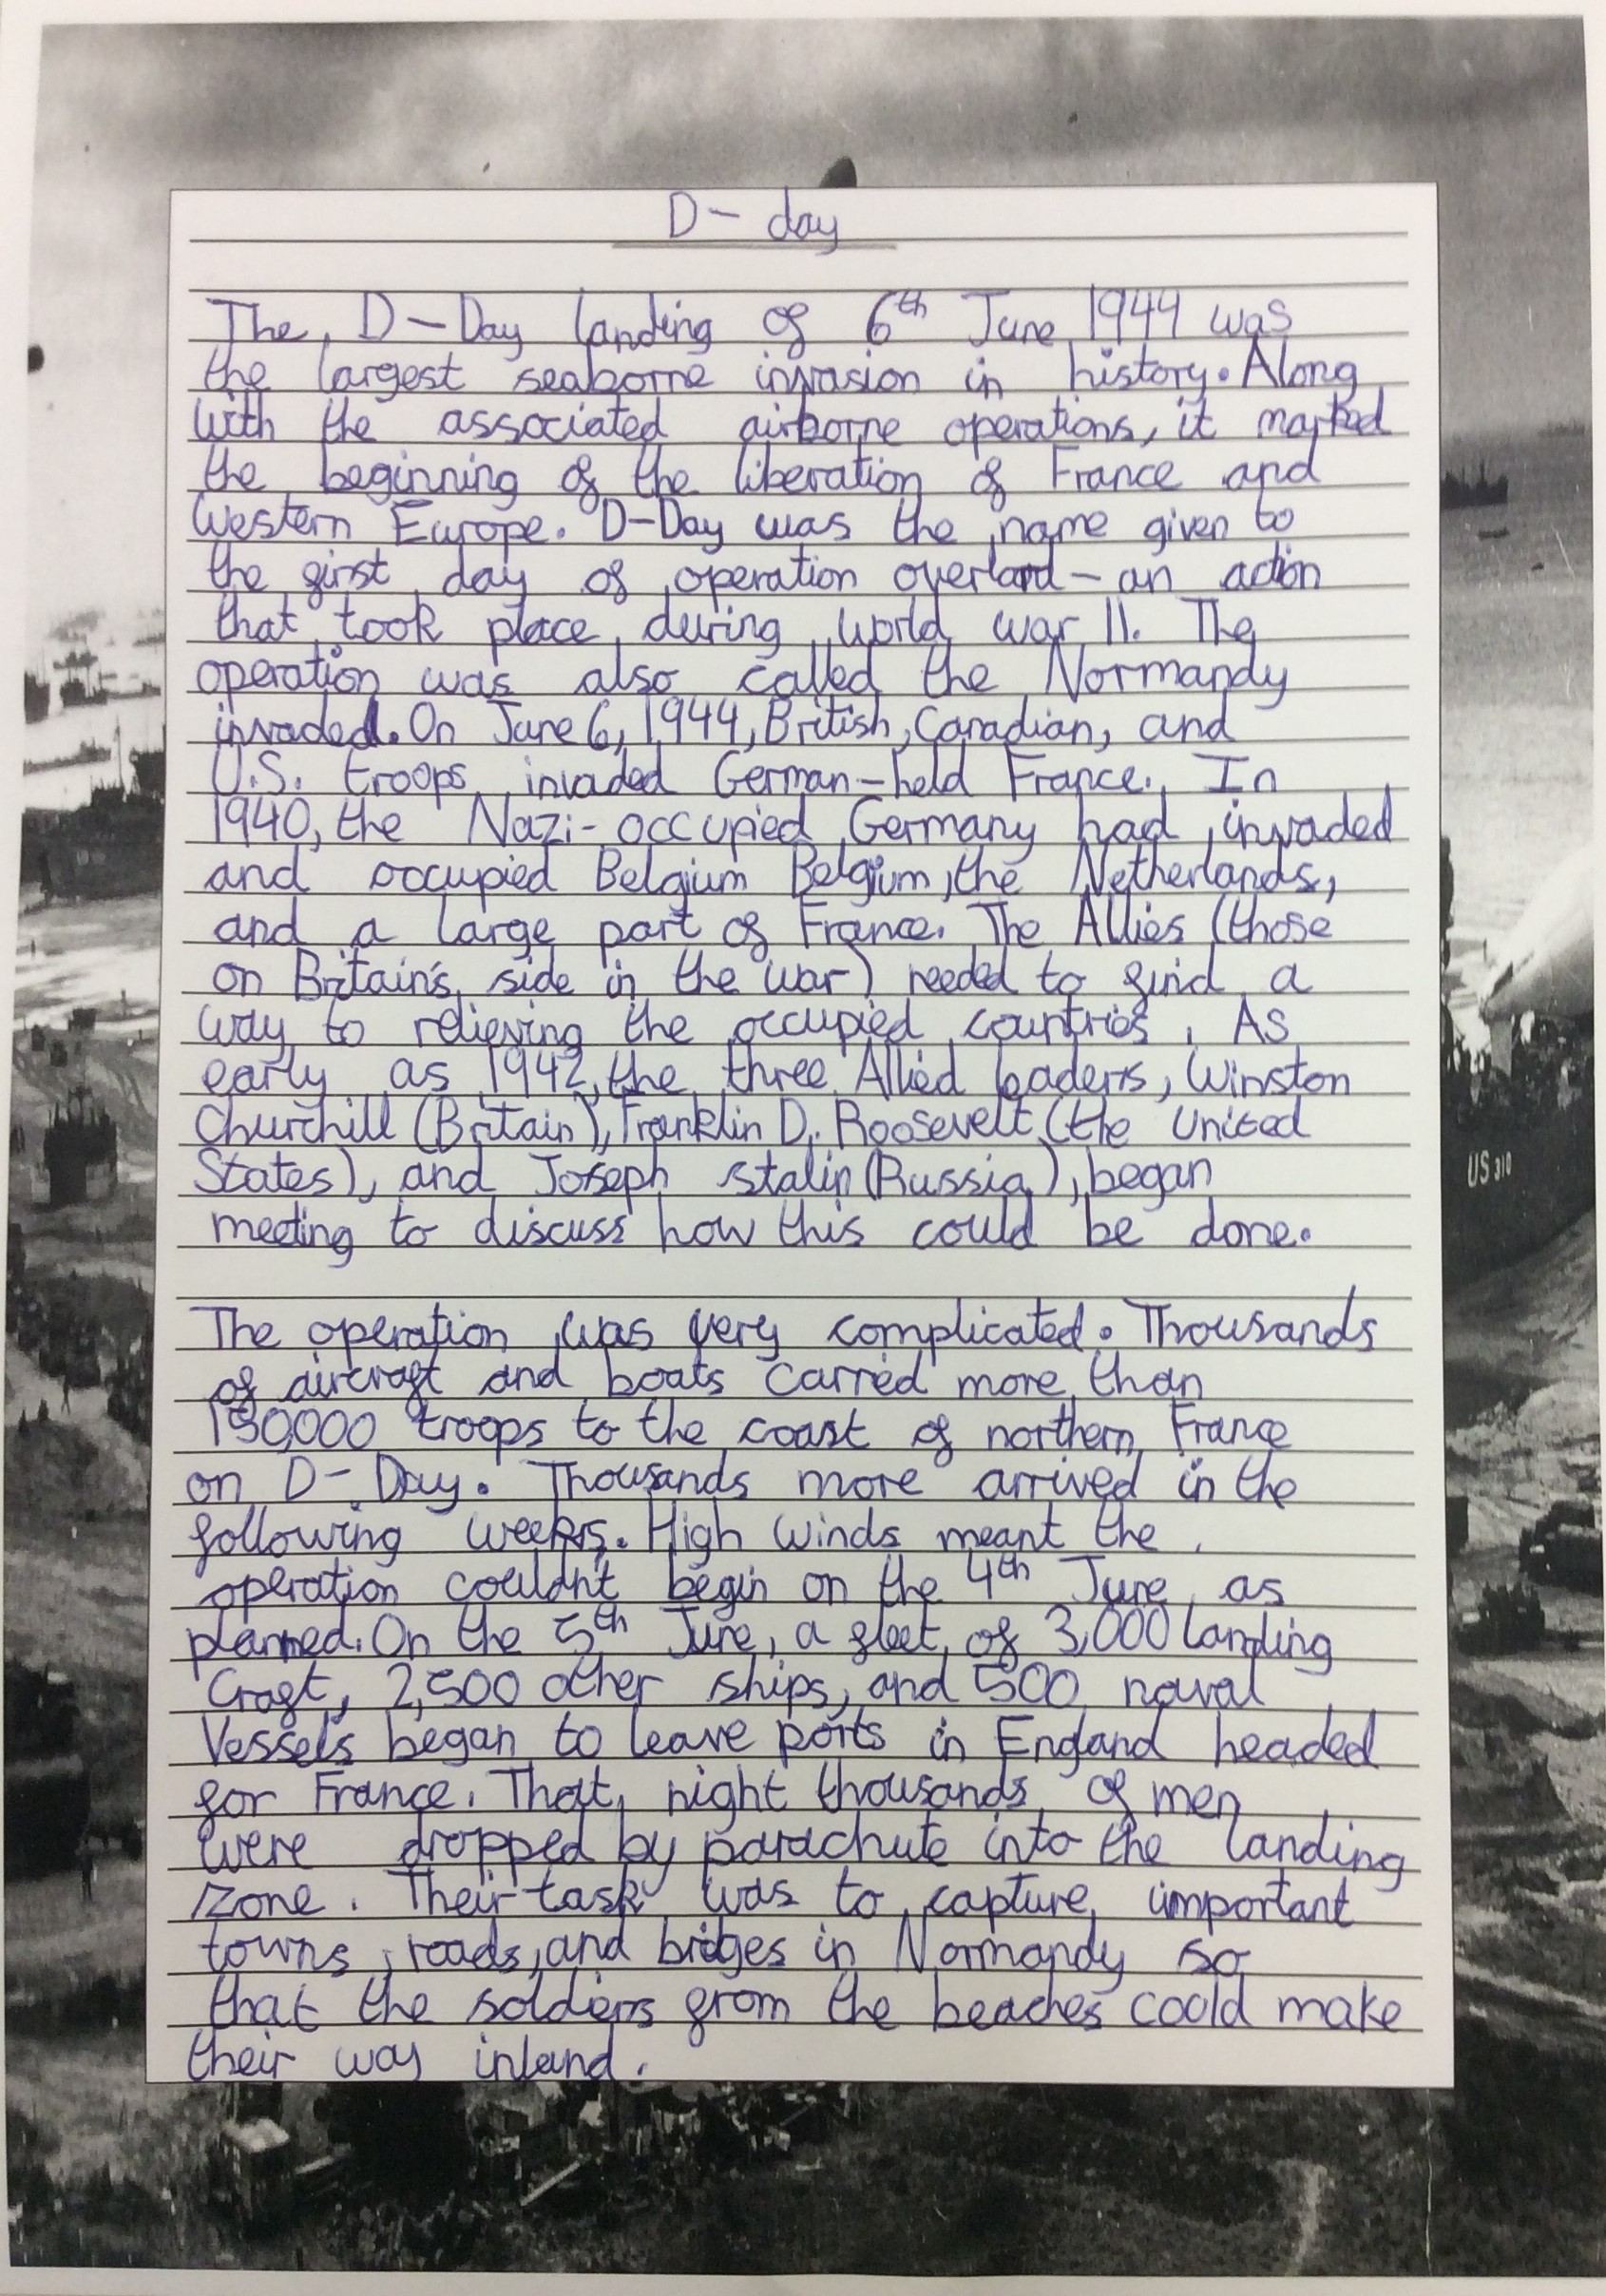 D - day
The D-Day landing of 6th June 1944 was
the largest seaborne invasion in history. Along
with the associated airborne operations, it marked
the beginning of the liberation of France and
Western Europe. D-Day was the name given to
the first day of operation overlord - an action
that took place during world war II. The
operation was also called the Normandy
invaded. On June 6, 1944, British, Canadian, and
U.S. troops invaded German-held France. In
1940, the Nazi-occupied Germany had invaded
and occupied Belgium Belgium, the Netherlands,
and a large part of France. The Allies (those
on Britain's side in the war) needed to find a
way to relieving the occupied countries. As
early as 1942, the three Allied leaders, Winston
Churchill (Britain), Franklin D. Roosevelt (the United
States), and Joseph stalin (Russia), began
meeting to discuss how this could be done.
The operation was very complicated. Thousands
of aircraft and boats carred more than
150,000 troops to the coast of northern France
on D-Day. Thousands more arrived in the
following weeks. High winds meant the
operation couldn't begin on the 4th June as
planned. On the 5th June, a fleet of 3,000 landing
Craft, 2,500 other ships, and 500 naval
Vessels began to leave ports in England headed
for France. That night thousands of men
were dropped by parachute into the landing
zone. Their task was to capture important
towns, roads, and bridges in Normandy so
that the soldiers from the beaches coold make
their way inland.
US 310